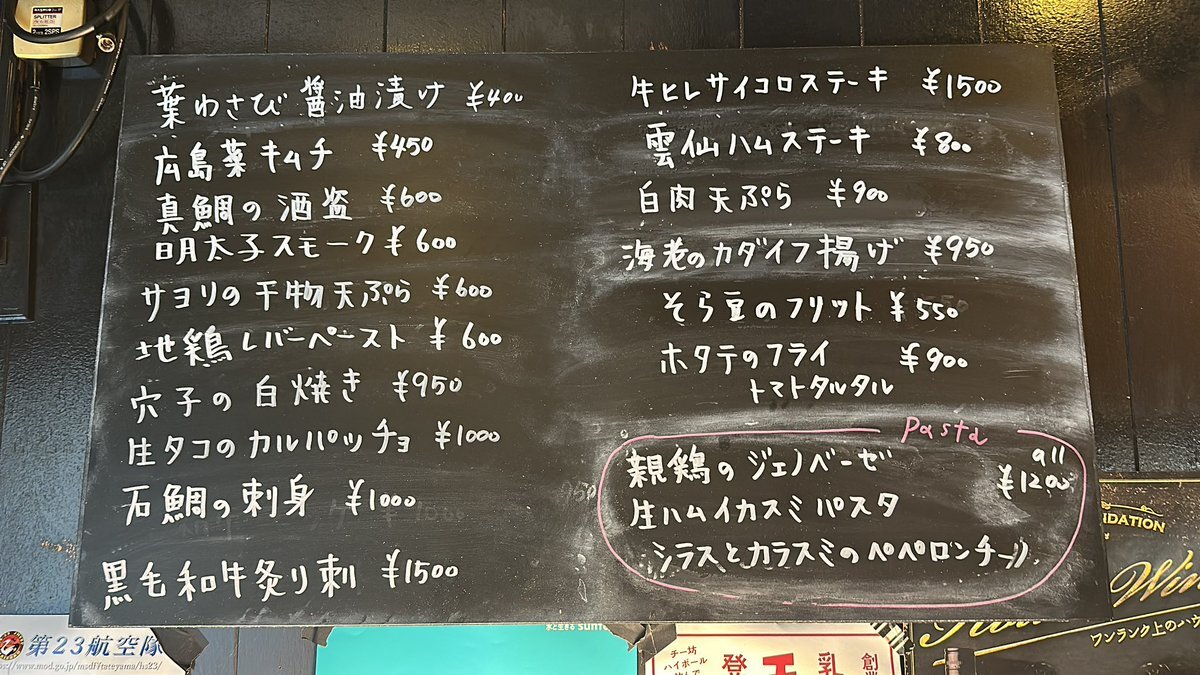 葉わさび醤油漬け ¥400
広島菜キムチ ¥450
真鯛の酒盗 ¥600
明太子スモーク ¥600
サヨリの干物天ぷら ¥600
地鶏レバーペースト ¥600
穴子の白焼き ¥950
生タコのカルパッチョ ¥1000
石鯛の刺身 ¥1000
黒毛和牛炙り刺 ¥1500
牛ヒレサイコロステーキ ¥1500
雲仙ハムステーキ ¥800
白肉天ぷら ¥900
海老のカダイフ揚げ ¥950
そら豆のフリット ¥550
ホタテのフライ ¥900
トマトタルタル
Pasta
all
¥1200
親鶏のジェノベーゼ
生ハムイカスミパスタ
シラスとカラスミのペペロンチーノ
SPLITTER
2SPS
第23航空隊
www.mod.go.jp/msdf/tateyama/hs23/
水と生きる
チー坊
ハイボール
創
乳
NDATION
Win
ワンランク上のハウ